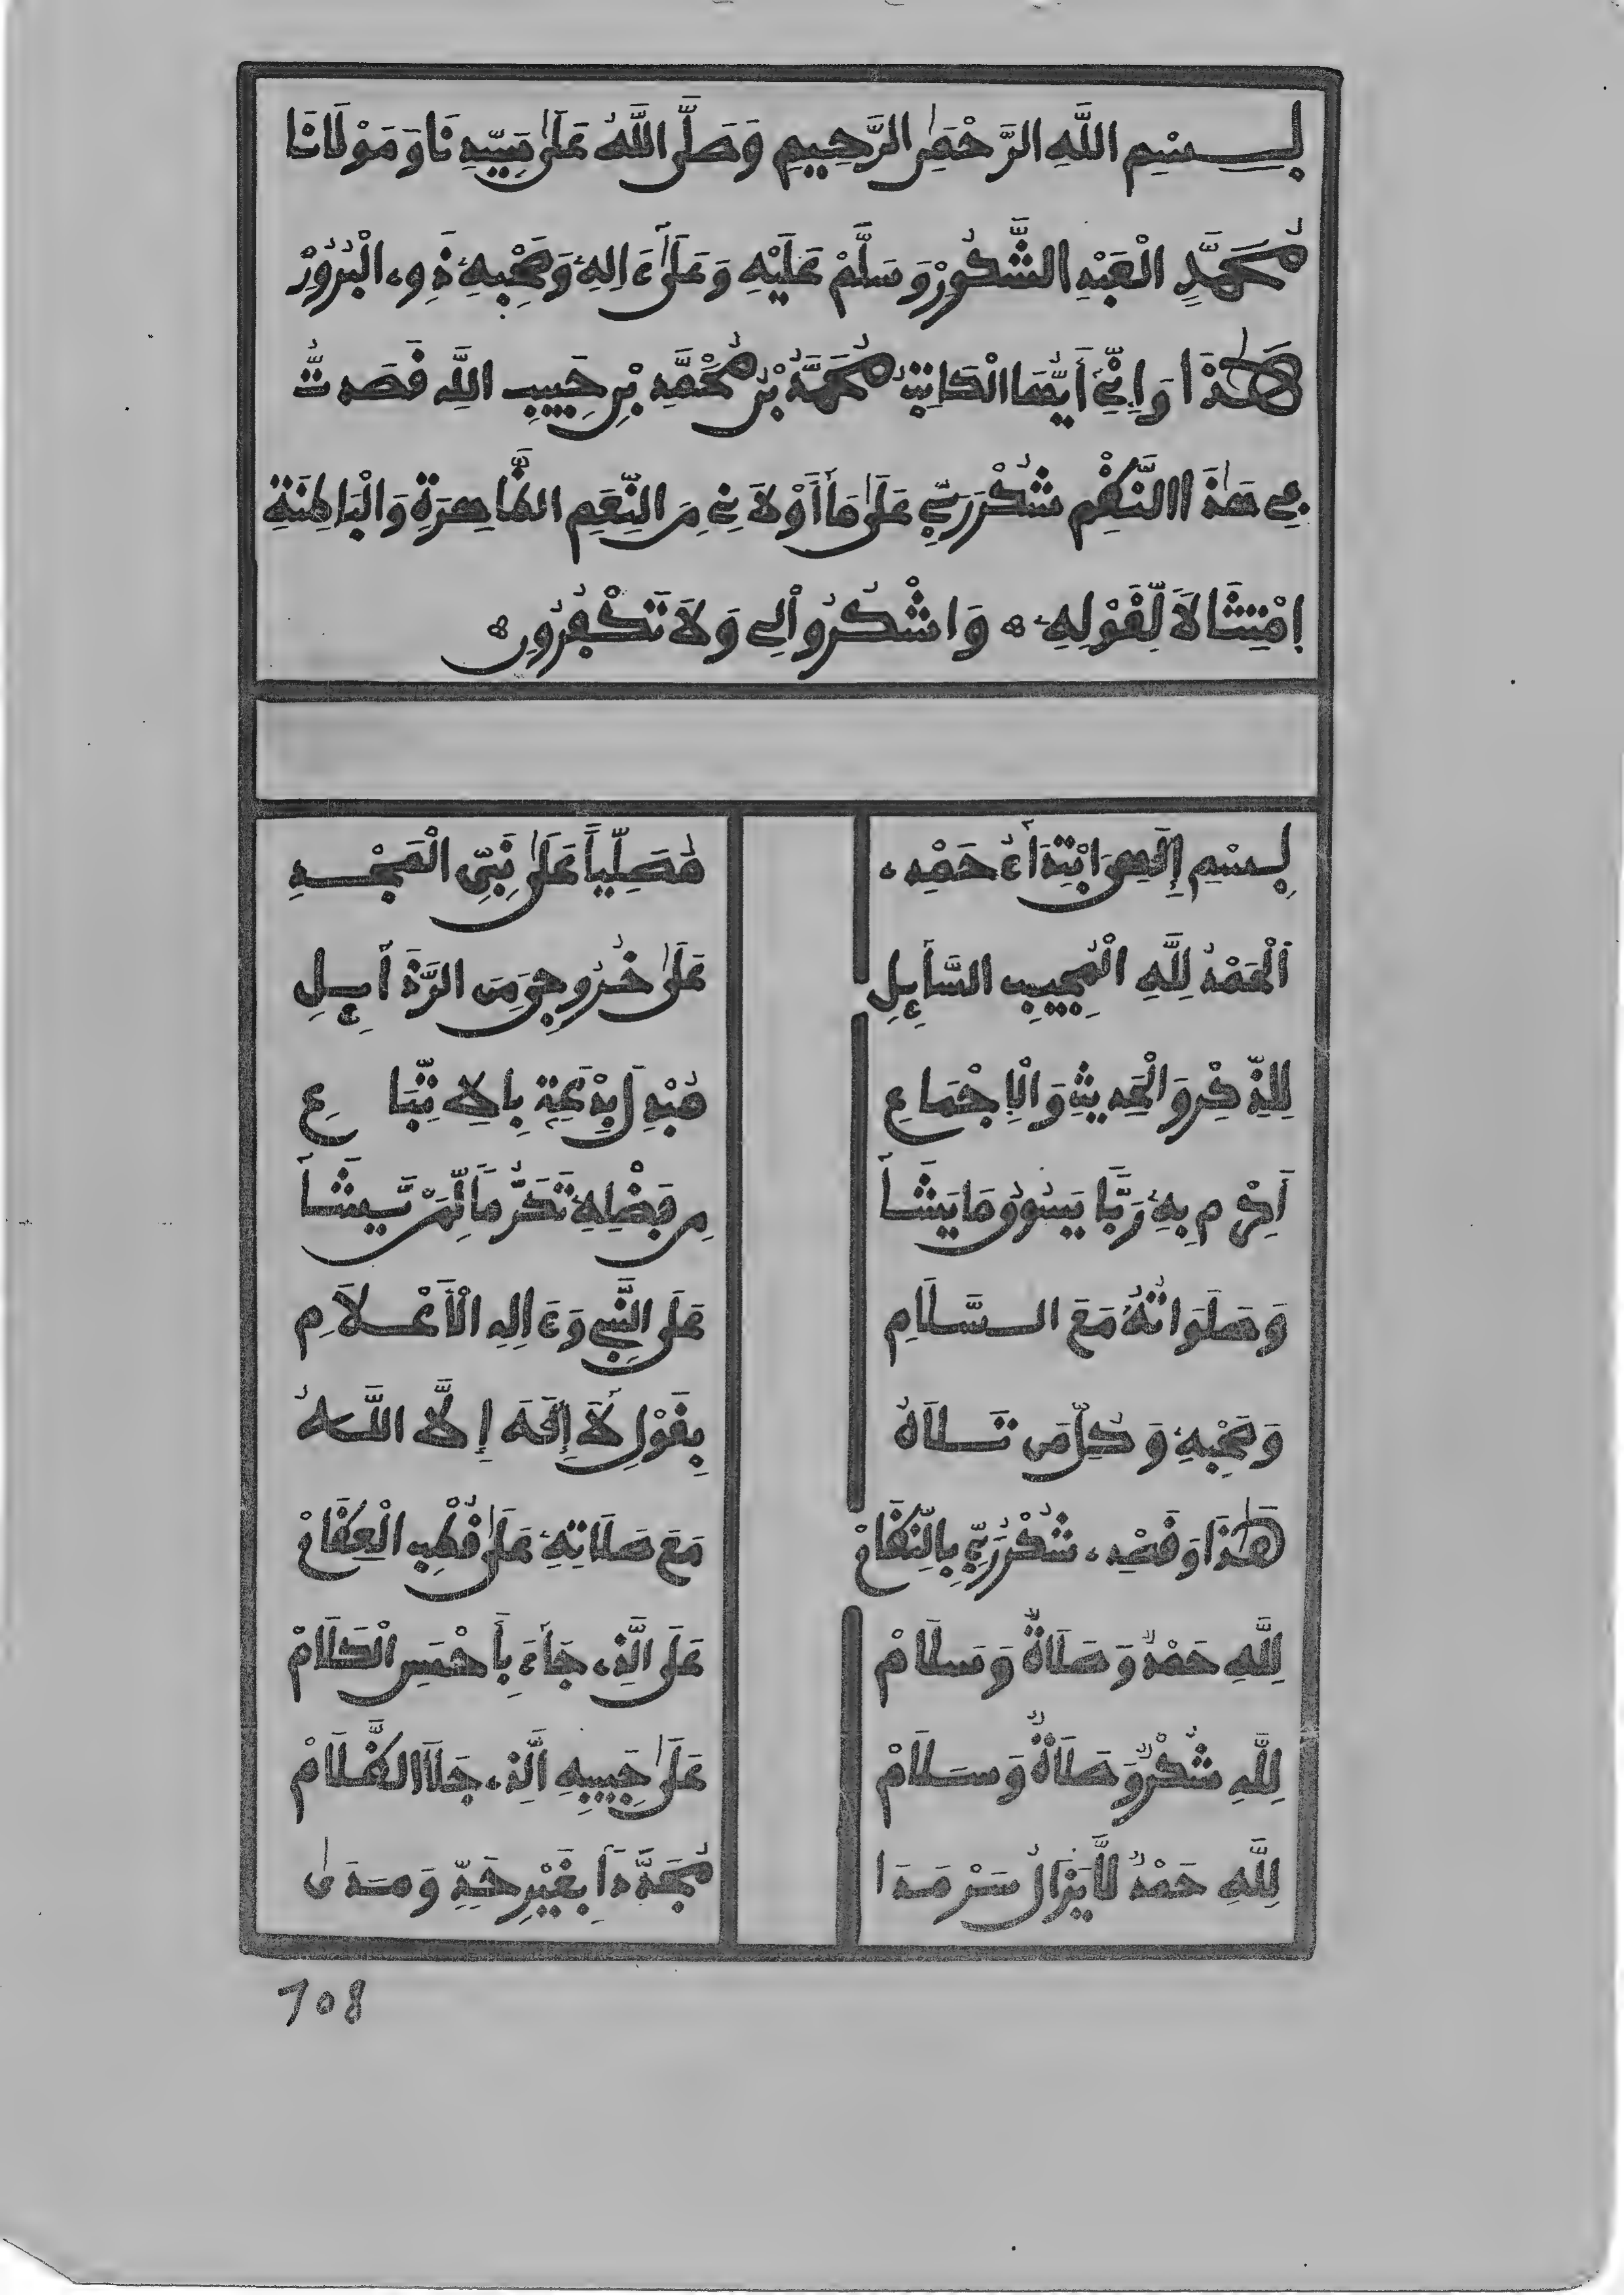 بِسْمِ اللَّهِ الرَّحْمَٰنِ الرَّحِيمِ وَصَلَّى اللَّهُ عَلَىٰ سَيِّدِنَا وَمَوْلَانَا
مُحَمَّدٍ الْعَبْدِ الشَّكُورْ وَسَلَّمْ عَلَيْهِ وَعَلَىٰ ءَالِهِ وَصَحْبِهِ ذَوِي الْبُرُورْ
هَٰذَا وَإِنِّي أَيُّهَا الْكَاتِبُ مُحَمَّدُ بْنُ مُحَمَّدِ بْنِ حَبِيبِ اللَّهِ قَصَدتُّ
فِي هَٰذَا النَّظْمِ شُكْرَ رَبِّي عَلَىٰ مَا أَوْلَانِي مِنَ النِّعَمِ الظَّاهِرَةِ وَالْبَاطِنَةِ
اِمْتِثَالًا لِّقَوْلِهِ وَاشْكُرُواْ لِي وَلَا تَكْفُرُونِ
بِسْمِ إِلَٰهِي ابْتِدَاءُ حَمْدِي مُصَلِّيًا عَلَىٰ نَبِيِّ الْمَجْدِ
اَلْحَمْدُ لِلَّهِ الْمُجِيبِ السَّائِلِ عَلَىٰ خُرُوجِي مِنَ الرَّذَائِلِ
لِلذِّكْرِ وَالْحَدِيثِ وَالْإِجْمَاعِ مُبْدِلَ بِدْعَةٍ بِالِاتِّبَاعِ
اَكْرِم بِهِ رَبًّا يَسُوقُ مَا يَشَا مِن فَضْلِهِ تَكَرُّمًا لِّمَنْ يَّشَا
وَصَلَوَاتُهُ مَعَ السَّلَامِ عَلَى النَّبِي وَءَالِهِ الْأَعْلَامِ
وَصَحْبِهِ وَكُلِّ مَن تَلَاهُ بِقَوْلِ لَا إِلَٰهَ إِلَّا اللَّهُ
هَٰذَا وَقَصْدِي شُكْرُ رَبِّي بِالنِّظَامْ مَعَ صَلَاتِهِ عَلَىٰ قُطْبِ الْعِظَامْ
لِلَّهِ حَمْدٌ وَصَلَاةٌ وَسَلَامْ عَلَى الَّذِي جَاءَ بِأَحْسَنِ الْكَلَامْ
لِلَّهِ شُكْرٌ وَصَلَاةٌ وَسَلَامْ عَلَىٰ حَبِيبِهِ الَّذِي جَلَا الظَّلَامْ
لِلَّهِ حَمْدٌ لَّا يَزَالُ سَرْمَدَا مُجَدَّدًا بِغَيْرِ حَدٍّ وَمَدَىٰ
108